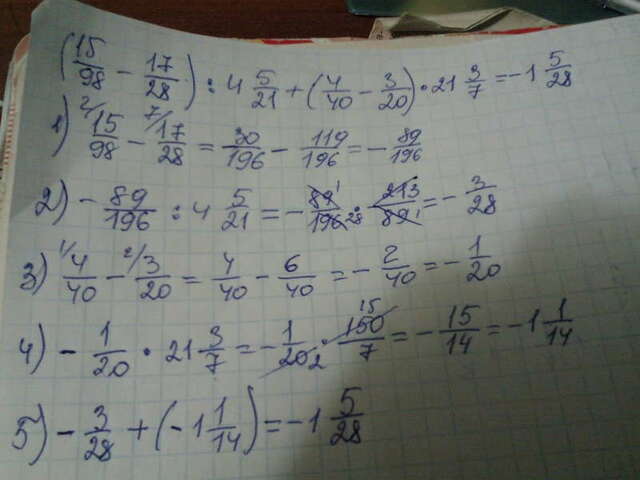 (15/98 - 17/28) : 4 5/21 + (4/40 - 3/20) · 21 3/7 = -1 5/28
1) 2/ 15/98 - 7/ 17/28 = 30/196 - 119/196 = - 89/196
2) - 89/196 : 4 5/21 = - 89 1/196 28 · 213/89 1 = - 3/28
3) 1/ 4/40 - 2/ 3/20 = 4/40 - 6/40 = - 2/40 = - 1/20
4) - 1/20 · 21 3/7 = - 1/20 2 · 15 150/7 = - 15/14 = -1 1/14
5) - 3/28 + (-1 1/14) = -1 5/28